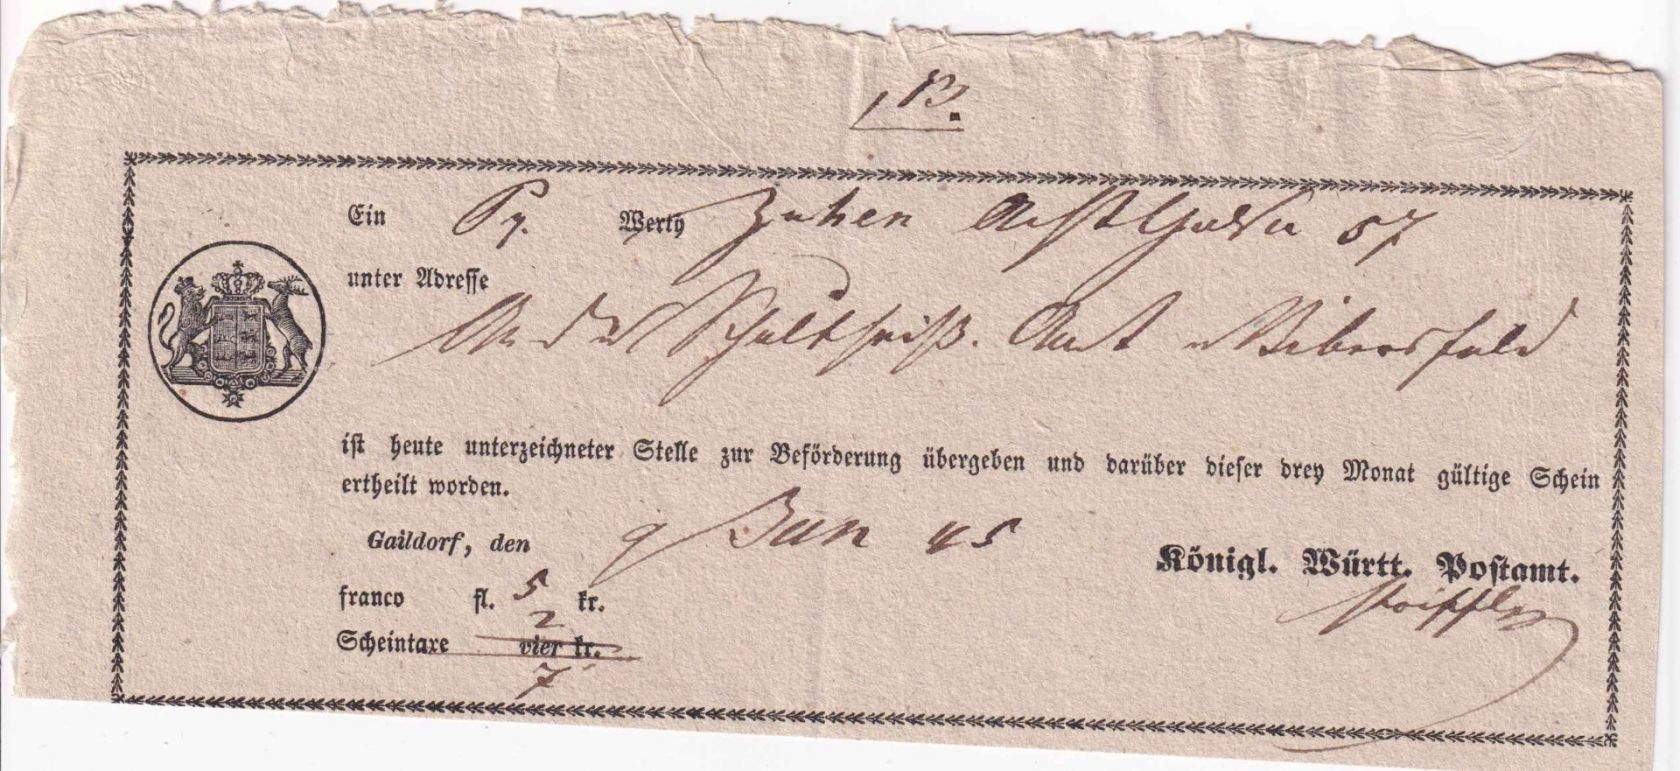 13.
Ein Werth
unter Adresse
Schultheiß. Amt Bibersfeld
ist heute unterzeichneter Stelle zur Beförderung übergeben und darüber dieser drey Monat gültige Schein
ertheilt worden.
Gaildorf, den 9 Jun 45
Königl. Württ. Postamt.
franco fl. 5 kr.
2
Scheintaxe vier kr.
7